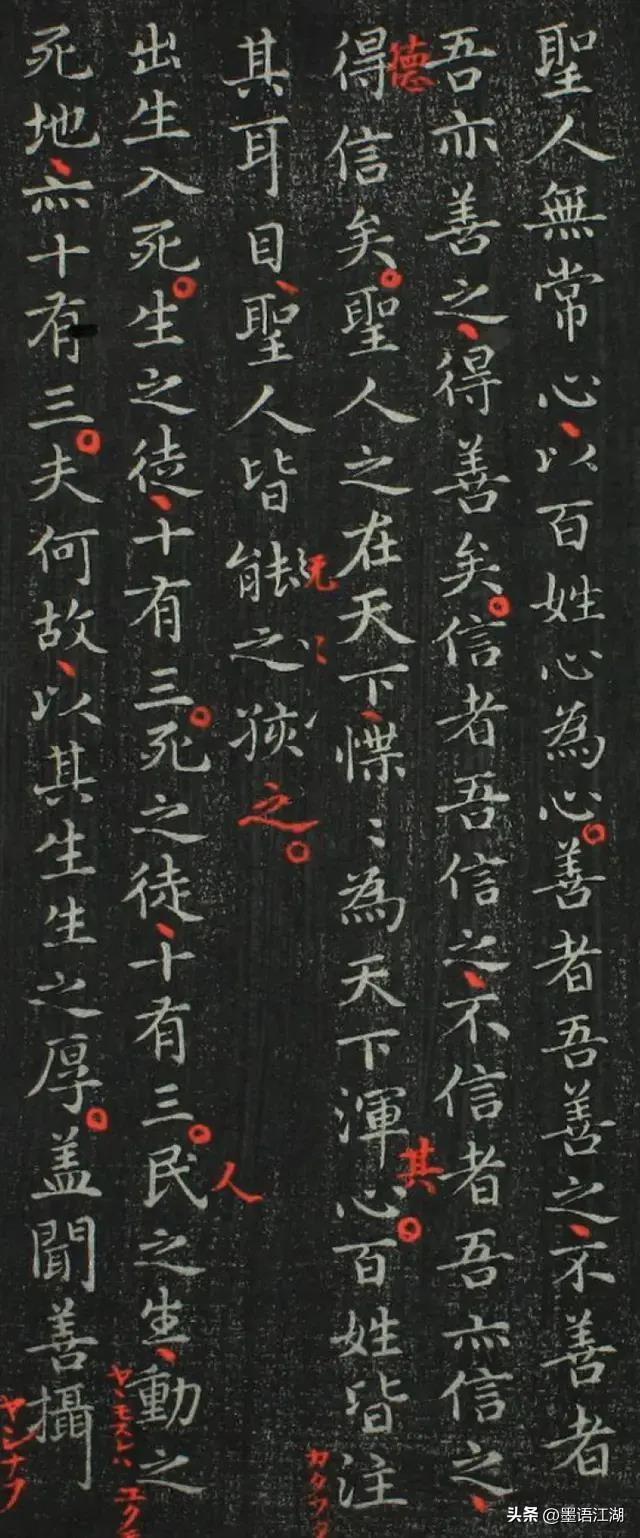 聖人無常心、以百姓心為心。善者吾善之、不善者
吾亦善之、得善矣。信者吾信之、不信者吾亦信之、
德
得信矣。聖人之在天下、惵〻為天下渾心。百姓皆注
其
其耳目、聖人皆能之孩之。
出生入死。生之徒、十有三。死之徒、十有三。民之生、動之
人
ヤヽモスレハ
死地、亦十有三。夫何故、以其生生之厚。盖聞善攝
ヤシナフ
头条 @墨语江湖